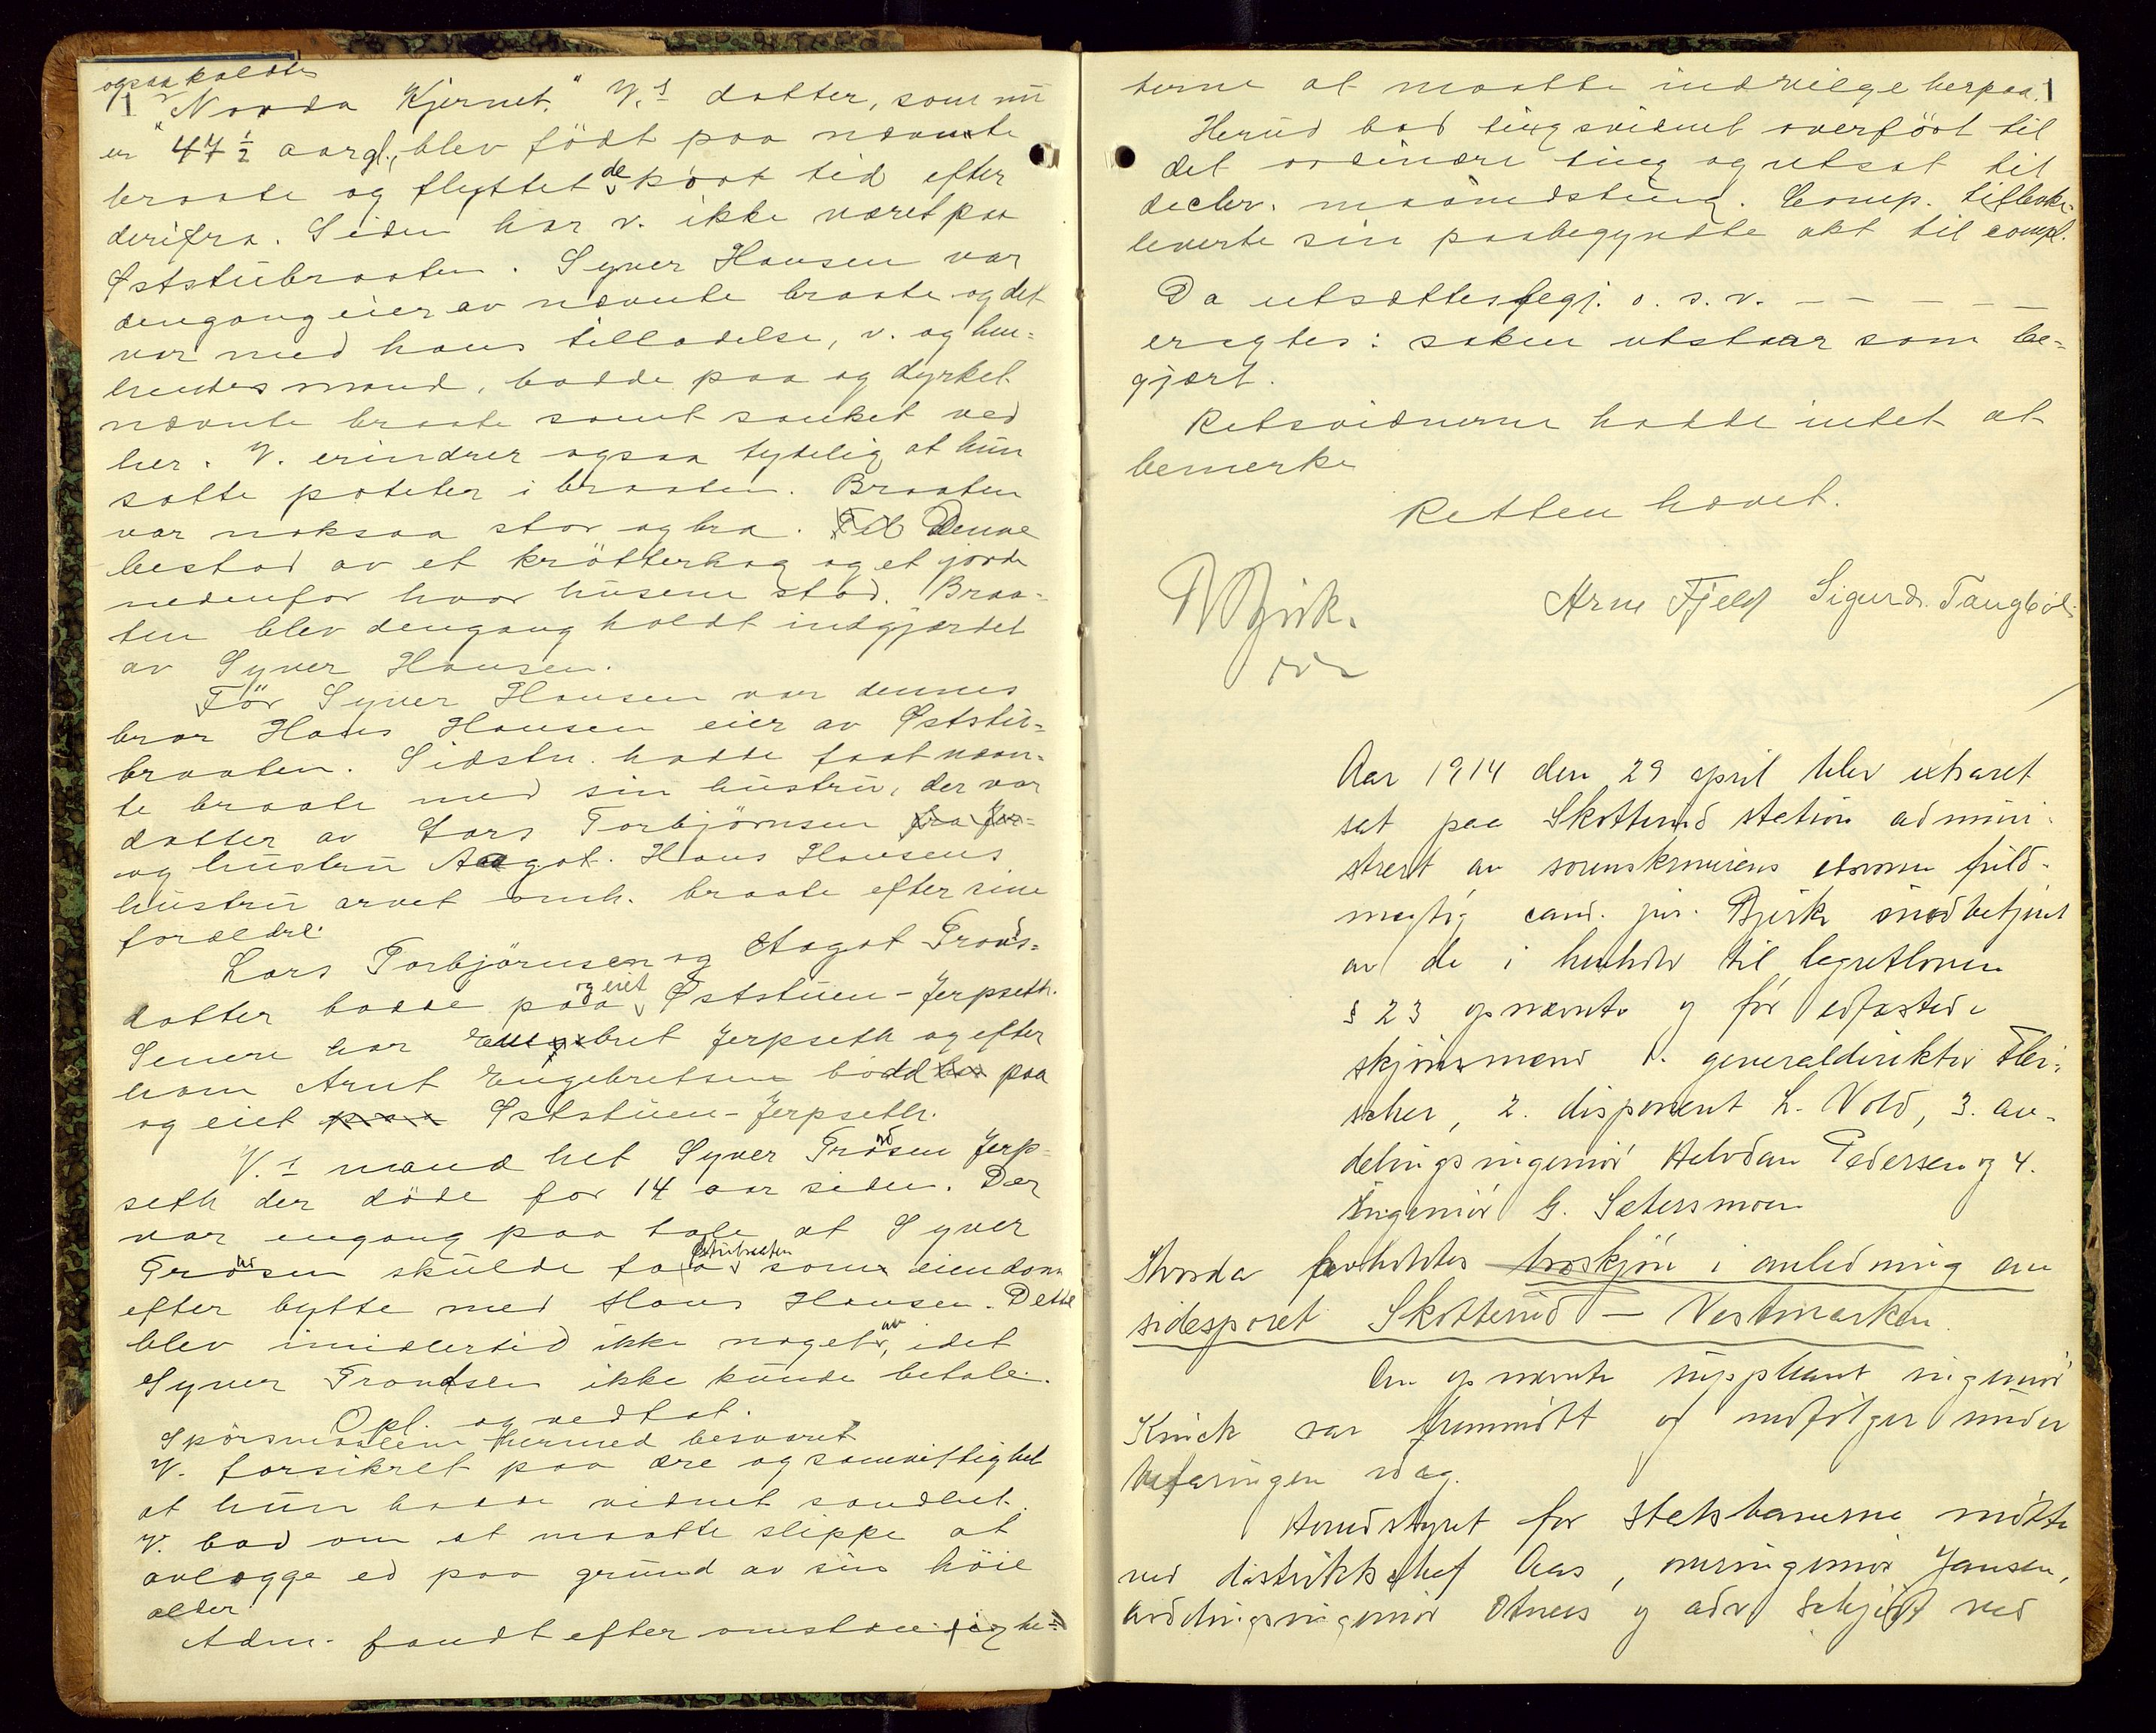 ogsaa kaldtes
"Norda Kjernet." V.s datter, som nu
er 47 1/2 aar gl., blev født paa nævnte
braate og flyttet de kort tid efter
derifra. Siden har v. ikke været paa
Øststubraaten. Syver Hansen var
dengang eier av nævnte braate og det
var med hans tilladelse, v. og hen-
hendes mand, bodde paa og dyrket
nævnte braate samt sanket ved
her. V. erindrer ogsaa tydelig at hun
satte poteter i braaten. Braaten
var noksaa stor og bra. Denne
bestod av et krøtterhag og et jorde
nedenfor hvor husene stod. Braa-
ten blev dengang holdt indgjærdet
av Syver Hansen.
Før Syver Hansen var dennes
bror Hans Hansen eier av Øststu-
braaten. Sidstn. hadde faat nævn-
te braate med sin hustru, der var
datter av Lars Torbjørnsen fra Jer-
og hustru Aagot. Hans Hansens
hustru arvet omh. braate efter sine
forældre.
Lars Torbjørnsen og Aagot Tronds-
datter bodde paa og eiet Øststuen-Jerpseth.
Senere har Engebret Jerpseth og efter
ham Arnt Engebretsen bodd paa
og eiet paa Øststuen-Jerpseth.
V.s mand het Syver Trondsen Jerp-
seth der døde for 14 aar siden. Der
var engang paa tale at Syver
Trondsen skulde faa Øststubraaten som eiendom
efter bytte med Hans Hansen. Dette
blev imidlertid ikke noget av, idet
Syver Trondsen ikke kunde betale.
Opl. og vedtat.
Spørsmaalene hermed besvaret
V. forsikret paa ære og samvittighet
at hun hadde vidnet sandhet.
V. bad om at maatte slippe at
avlægge ed paa grund av sin høie
alder.
Adm. fandt efter omstændighe-
terne at maatte indvilge herpaa.
Herud bad tingsvidnet overført til
det ordinære ting og utsat til
decbr. maanedsting. Comp. tilbake-
leverte sin paabegyndte akt til compl.
Da utsættes begj. o. s. v. — — — —
eragtes: saken utstaar som be-
gjært.
Retsvidnerne hadde intet at
bemerke
Retten hævet.
Bjirk.
Arne Fjeld Sigurd Tangbøl
Aar 1914 den 29 april blev extraret
sat paa Skotterud station admini-
strert av sorenskriverens edsvorne fuld-
mægtig cand. jur. Bjirk medbetjent
av de i henhold til lagretloven
§ 23 opnævnte og før edfæstede
skjønsmænd 1. generaldirektør Flei-
scher, 2. disponent L. Vold, 3. av-
delingsingeniør Halvdan Pedersen og 4.
Ingeniør G. Sætersmoen
Hvorda forholdtes taxskjøn i anledning av
sidesporet Skotterud – Vestmarken.
Den opnævnte suppleant ingeniør
Kinck var fremmøtt og medfølger under
befaringen idag.
Hovedstyret for Statsbanerne møtte
ved distriktschef Aas, overingeniør Jansen,
avdelingsingeniør Otnees og adv. Schjødt ved